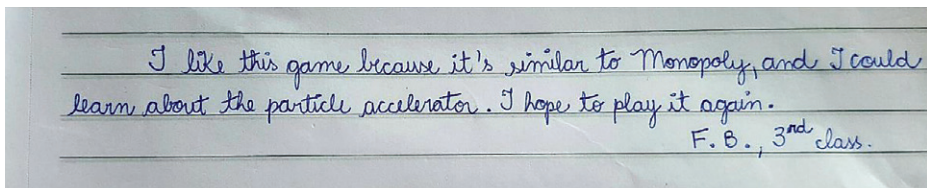 I like this game because it's similar to Monopoly, and I could
learn about the particle accelerator. I hope to play it again.
F. B., 3nd class.